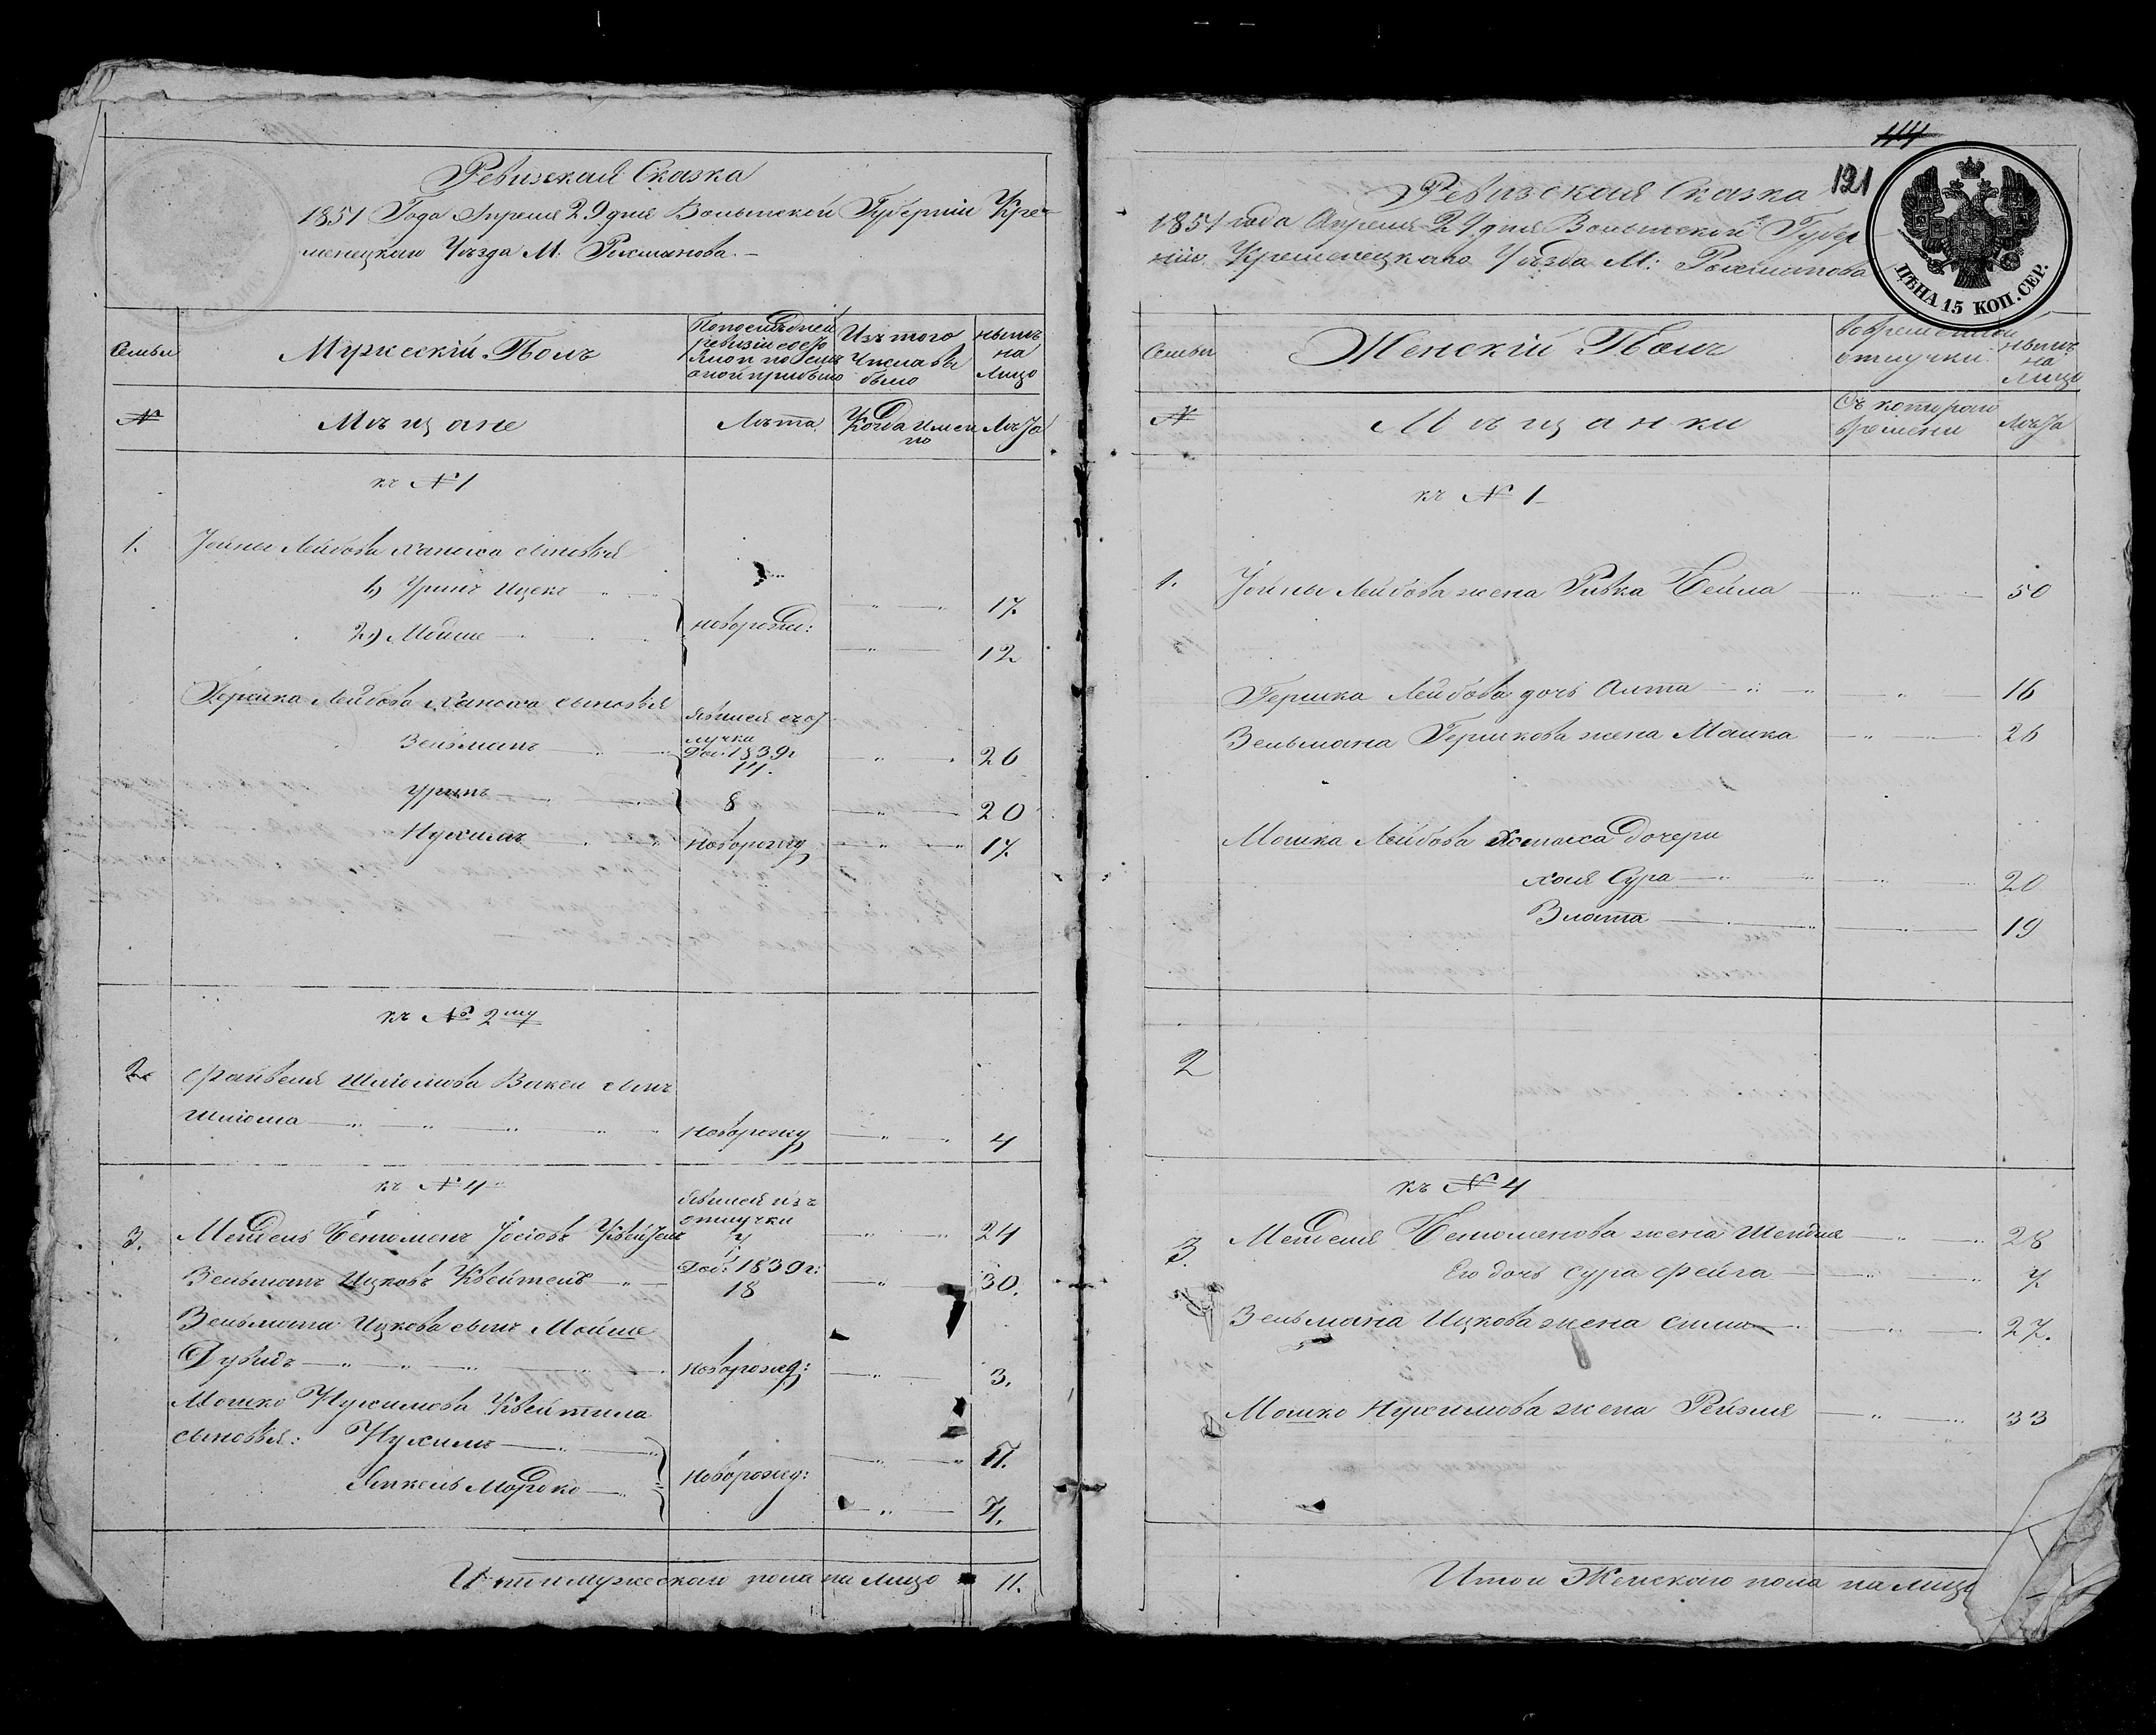 Ревизская Сказка
1851 Года Апреля 29 дня Волынской Губерніи Кре-
менецкаго Уѣзда М. Рахманова.
Семьи
Мужескій Полъ
По последней ревизіи состояло и после оной прибыло
Изъ того числа выбыло
нынѣ на лицо
№
Мѣщане
Лѣта
Когда имен но
Лѣта
къ № 1
1. Іойны Лейбова Ханыса сыновья
1) Уринъ Ицекъ 17.
новорожд:
2) Мойше 12
Гершка Лейбова Ханыса сыновья
Зельманъ
явился съ от лучки
Рев: 1839 г
14.
26
Уринъ 8 20
Нухимъ новорожд 17.
къ № 2му
2. Файвеля Шліомова Вакси сынъ
Шліома новорожд 4
къ № 4
3. Мендель Бенюменъ Іосіовъ Квейтель
явился изъ отлучки
24
Зельманъ Ицковъ Квейтель
Рев: 1839 г:
18
30.
Зельмана Ицкова сынъ Мойше
Дувидъ новорожд: 3.
Мошко Нухимова Квейтила
сыновья: Нухимъ 11.
новорожд:
Янкель Мордко 7.
Итого мужескаго пола на лицо 11.
114
121
Ревизская Сказка
1851 года Апреля 29 дня Волынской Губер-
ніи Кременецкаго Уѣзда М: Рахманова
ЦѢНА 15 КОП. СЕР.
Семьи
Женскій Полъ
Во временной отлучки
нынѣ на лицо
№
Мѣщанки
Съ котораго времени
Лѣта
къ № 1
1. Іойны Лейбова жена Ривка Бейла 50
Гершка Лейбова дочь Алта 16
Зельмана Гершкова жена Машка 26
Мошка Лейбова Ханыса дочери
Хая Сура 20
Злата 19
2
къ № 4
3. Менделя Бенюменова жена Шендля 28
Его дочь Сура Фейга 7
Зельмана Ицкова жена Сима 27.
Мошко Нухимова жена Рейзля 33
Итого Женскаго пола на лицо